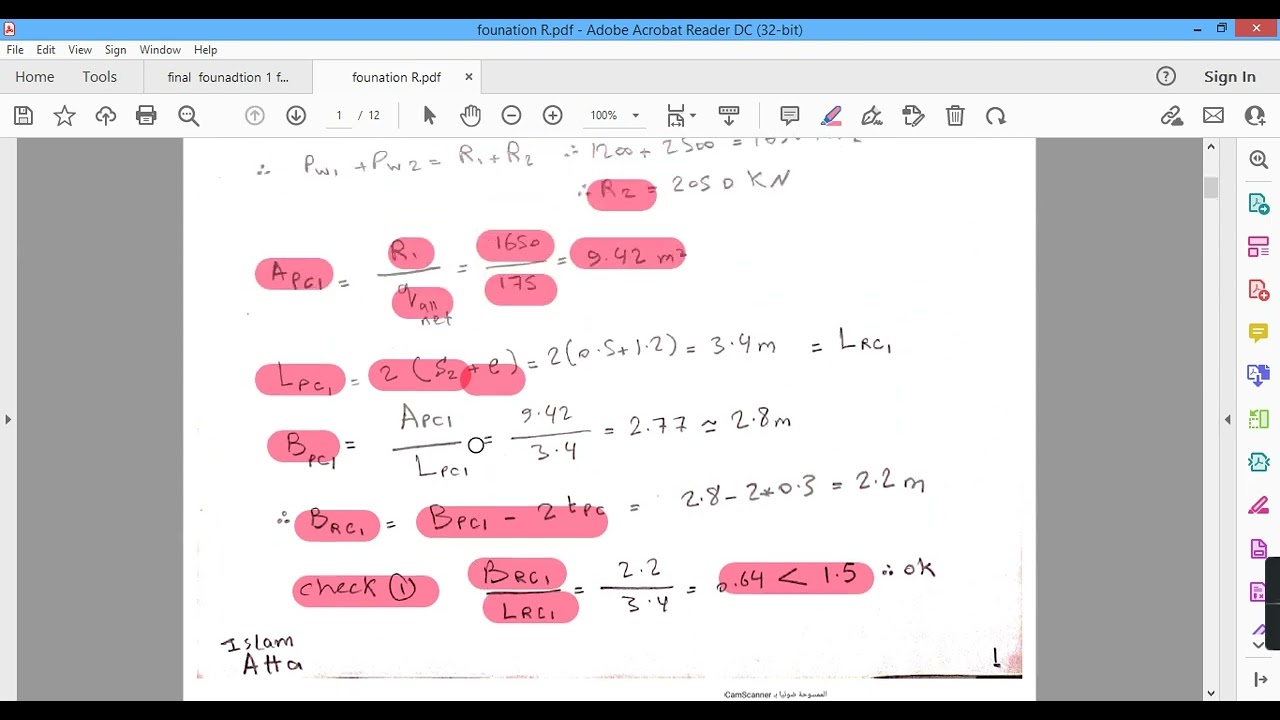 founation R.pdf - Adobe Acrobat Reader DC (32-bit)
File Edit View Sign Window Help
Home Tools final founadtion 1 f... founation R.pdf × Sign In
1 / 12 100%
∴ PW1 + PW2 = R1 + R2 ∴ 1200 + 2500 =
∴ R2 = 2050 KN
APC1 = R1 / qall net = 1650 / 175 = 9.42 m²
LPC1 = 2 (S2 + e) = 2(0.5+1.2) = 3.4 m = LRC1
BPC1 = APC1 / LPC1 = 9.42 / 3.4 = 2.77 ≃ 2.8 m
∴ BRC1 = BPC1 - 2 tPC = 2.8 - 2*0.3 = 2.2 m
check ① BRC1 / LRC1 = 2.2 / 3.4 = 0.64 < 1.5 ∴ ok
Islam
Atta
1
الممسوحة ضوئيا بـ CamScanner